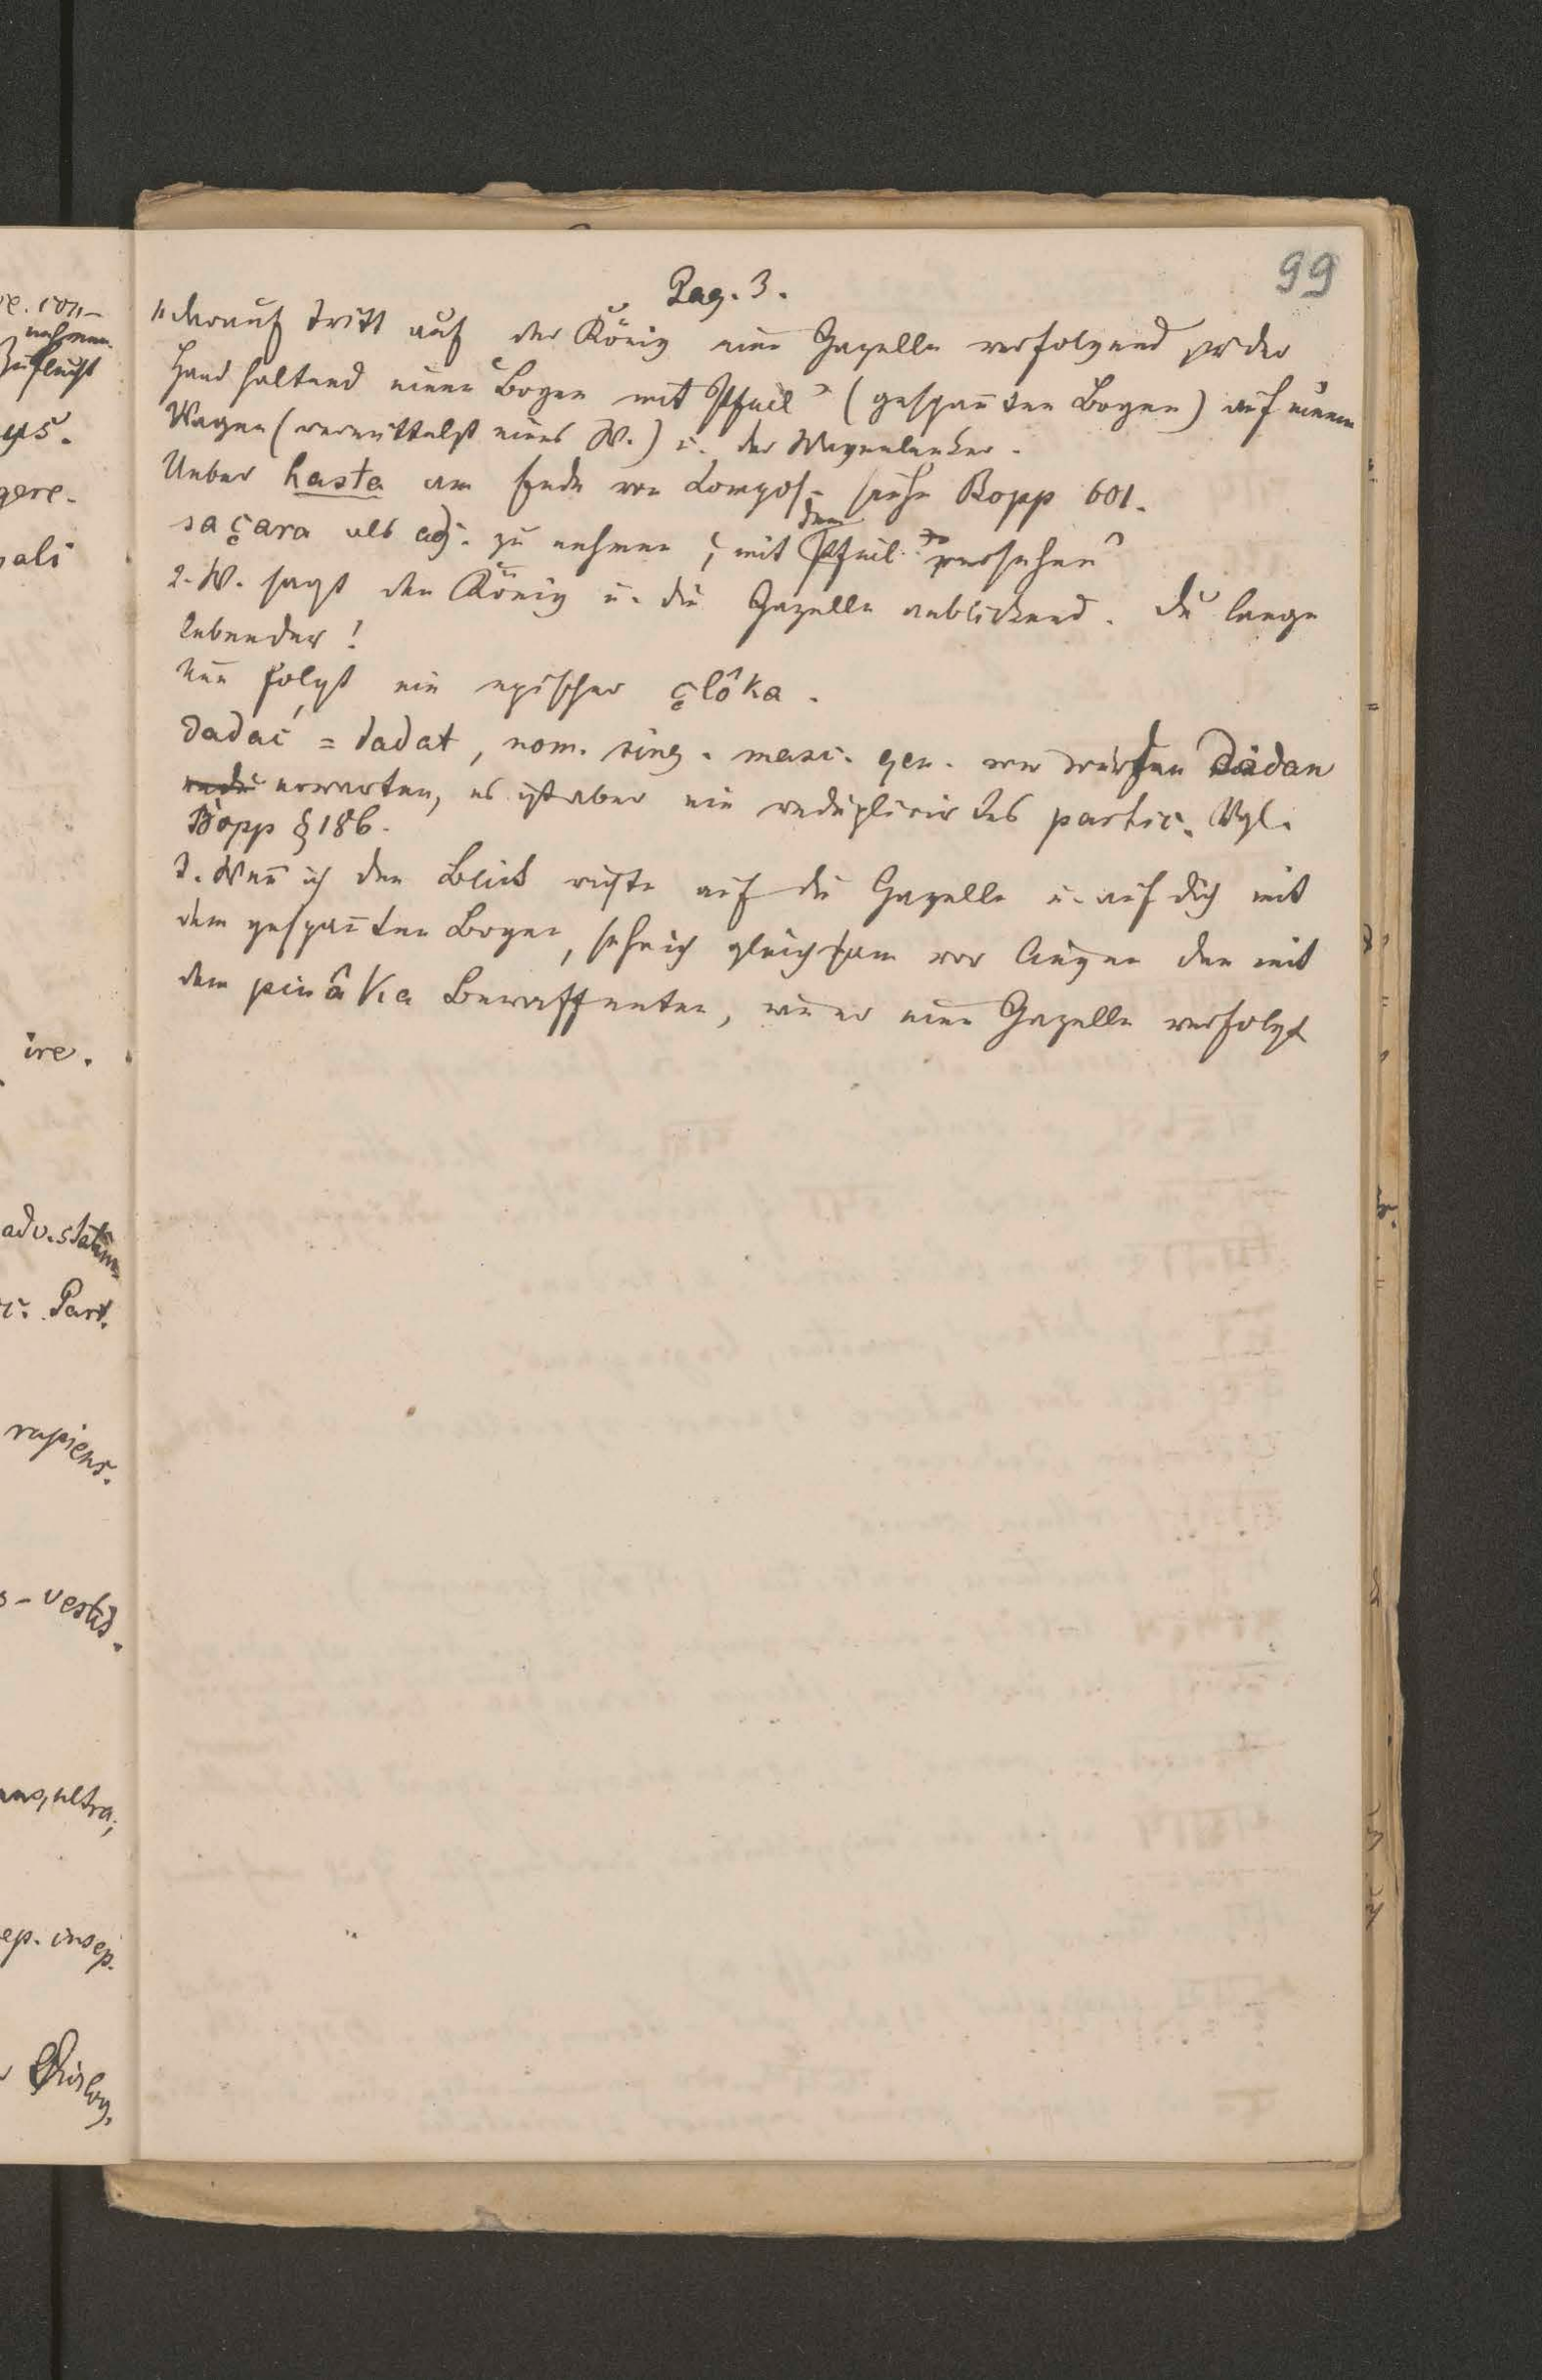 99
Pag. 3.
1, darauf tritt auf der König eine Gazelle verfolgend in der
Hand haltend einen Bogen mit Pfeil (gespan̄ten Bogen) auf einem
Wagen (vermittelst eines W.) u. der Wagenlenker.
Ueber hasta am Ende von Compos. siehe Bopp 601.
saçara als adj. zu nehmen, mit dem Pfeil versehen
2. W. sagt den König u. die Gazelle anblickend. Du lange
lebender!
Nun folgt ein epischer çlôka.
dadac = dadat, nom. sing. masc. gen. wir würden dadan
erwarten, es ist aber ein reduplicirtes partic. Vgl.
Bopp § 186.
3. Wen̄ ich den Blick richte auf die Gazelle u. auf dich mit
dem gespan̄ten Bogen, sehe ich gleichsam vor Augen den mit
dem pinâka Bewaffneten, wie er eine Gazelle verfolgt
nehmen
Zuflucht
ys.
gere.
ali
ire.
adv. statim
Part.
rapiens.
s - vestis.
ultra,
ep. insep.